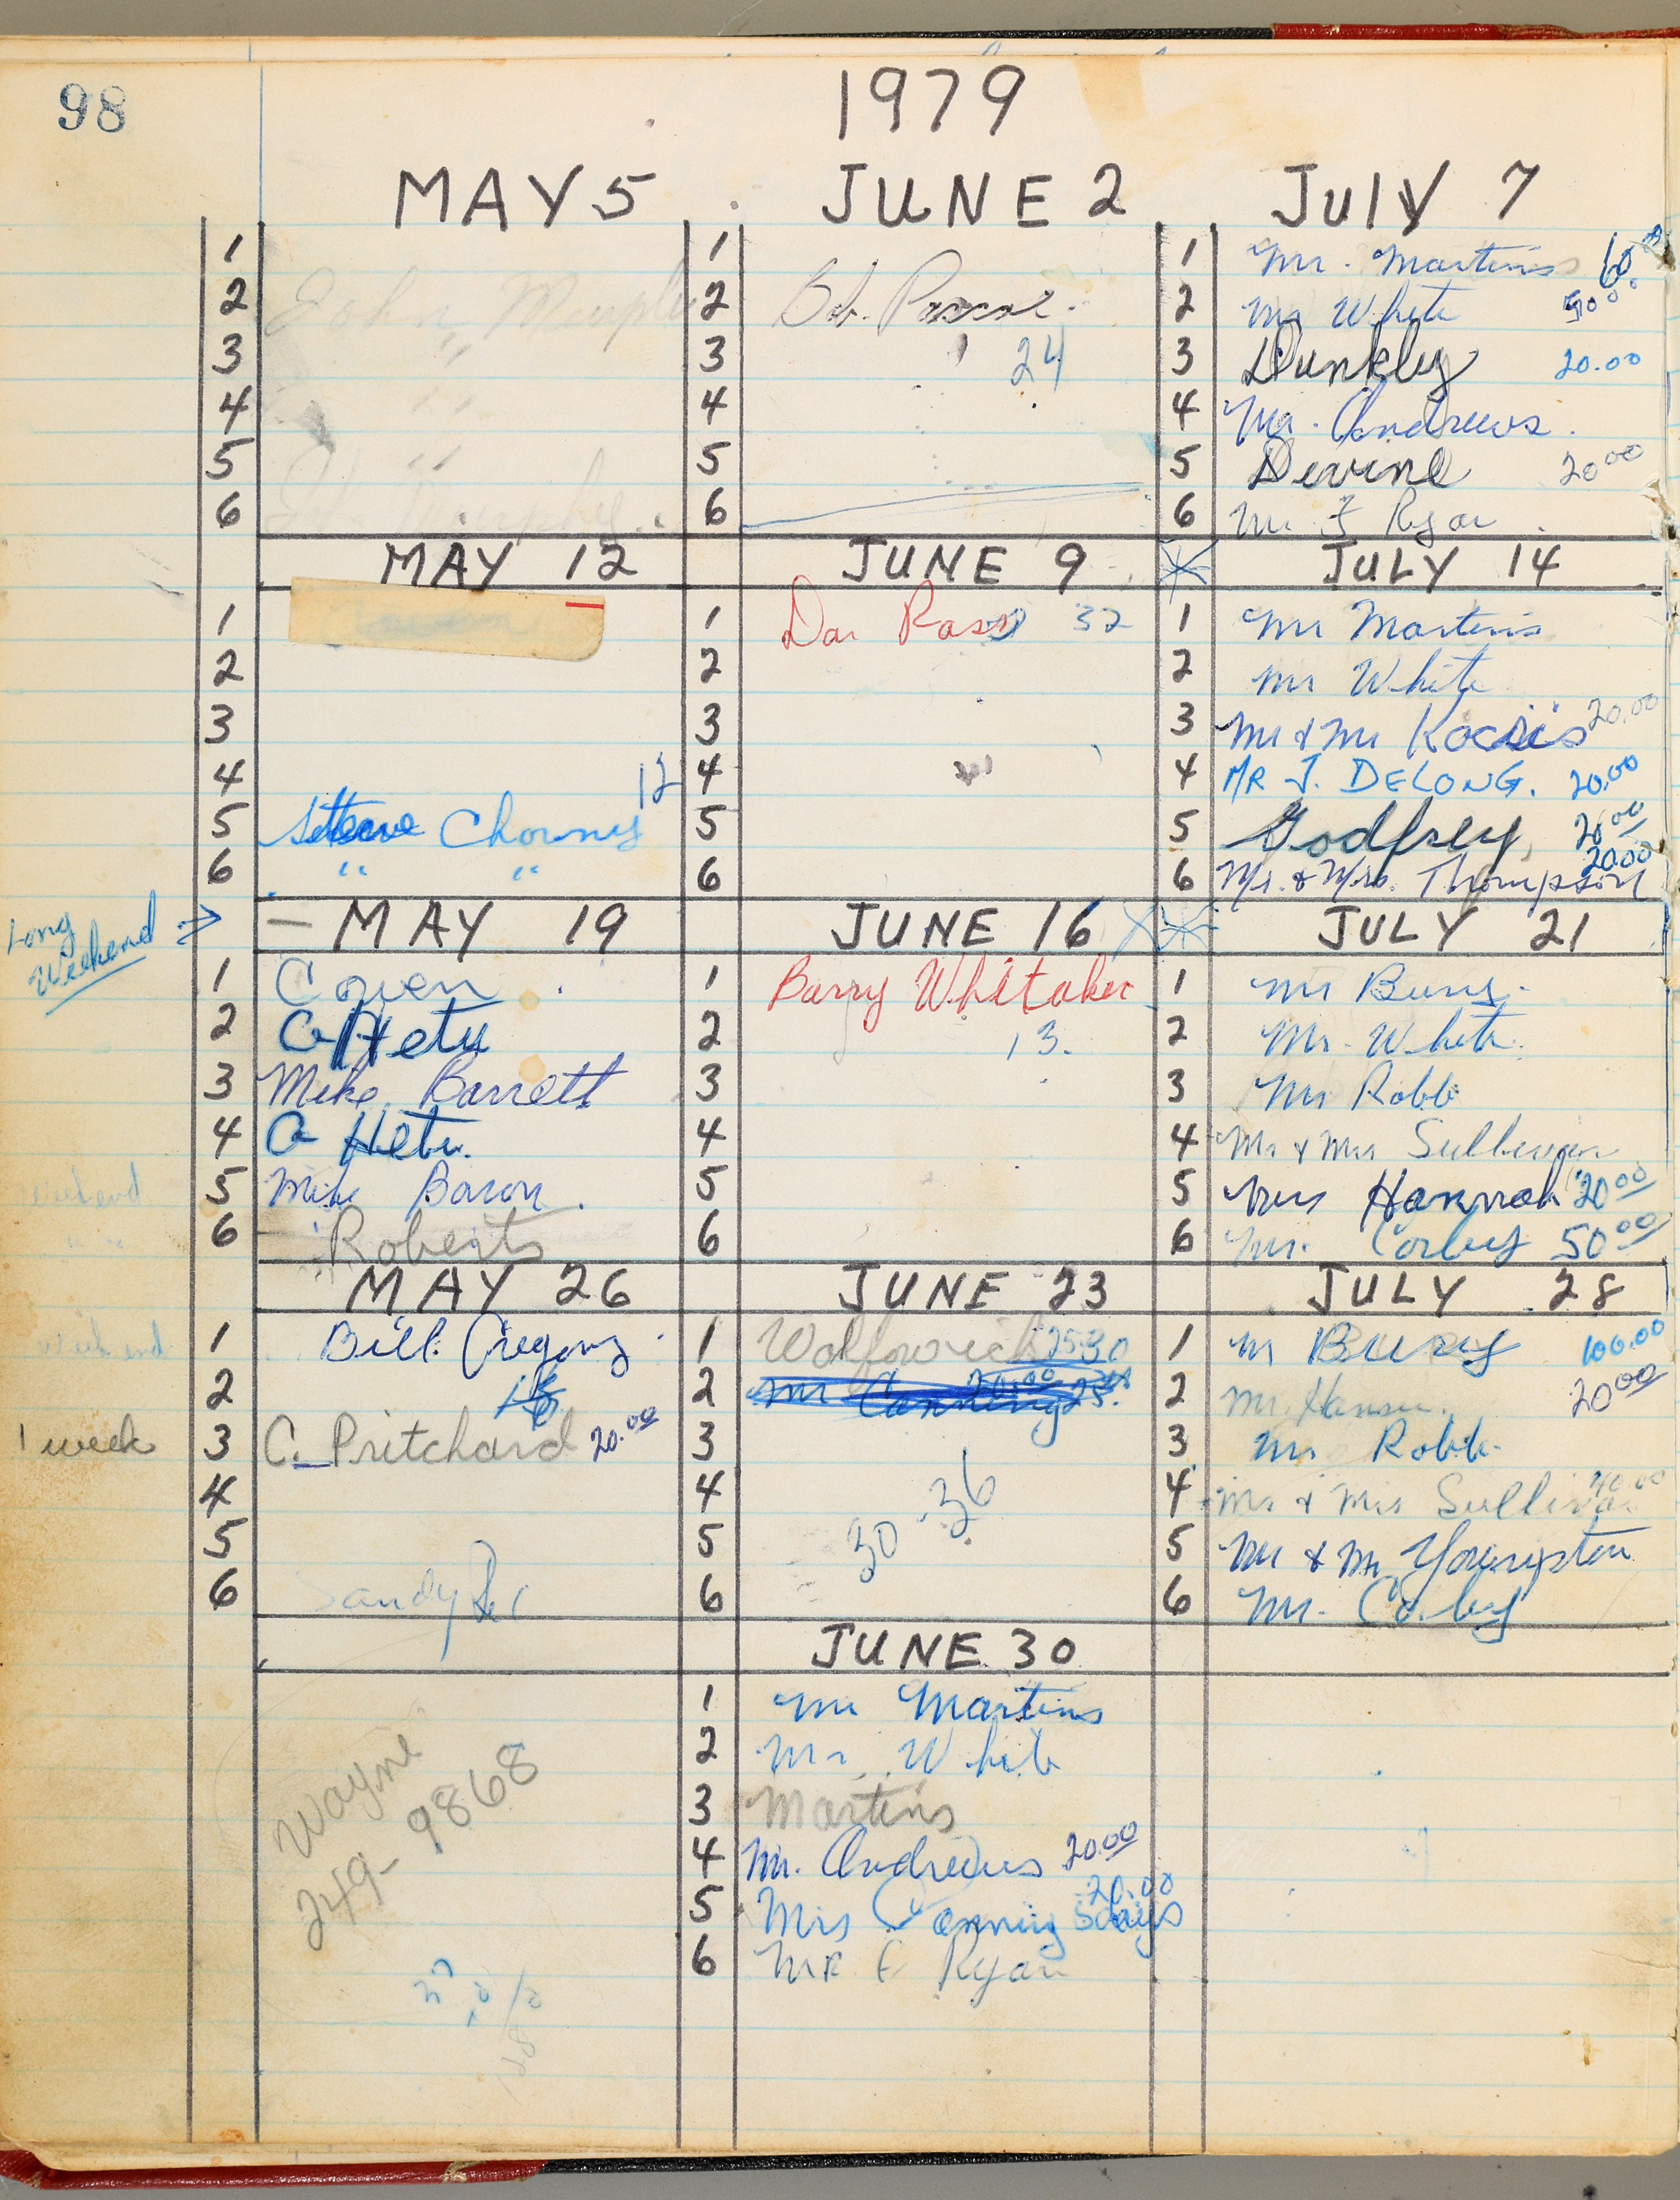 98
1979
MAY 5
1
2 John Murphy
3 " "
4 " "
5 " "
6 Murphy
MAY 12
1
2
3
4 12
5 Steve Chorney
6 " "
Long Weekend ⇒ - MAY 19
1 Cowen
2 C Hetu
3 Mike Barrett
4 C Hetu.
5 Mike Baron.
weekend
6 Roberts
MAY 26
week end
1 Bill Gregory
2
1 week 3 C. Pritchard 20.00
4
5
6 Sandy
Wayne
249-9868
JUNE 2
1
2 Bob
3 24
4
5
6
JUNE 9
1 Ross 32
2
3
4
5
6
JUNE 16
1 Barry Whitaker
2 13.
3
4
5
6
JUNE 23
1
2 Mr Canning 20.00 25.
3
4
30-36
5
6
JUNE 30
1 Mr Martins
2 Mr. White
3 Martins
4 Mr. Andrews 20.00
5 Mrs Canning 20.00 5 days
6 MR F Ryan
JULY 7
1 Mr. Martins 60
2 Mr White 50.00
3 Dunkley 20.00
4 Mr. Andrews.
5 Devine 20.00
6 Mr F Ryan
JULY 14
1 Mr Martins
2 Mr White
3 Mr & Mr Kocsis 20.00
4 MR J. DELONG. 20.00
5 Godfrey 20.00
6 Mr. & Mrs. Thompson 20.00
JULY 21
1 Mr Bury.
2 Mr. White.
3 Mr Robb
4 Mr & Mrs Sullivan
5 Mrs Hannah 20.00
6 Mr. Corby 50.00
JULY 28
1 M Bury 100.00
2 Mr. Hansen. 20.00
3 Mr Robb.
4 Mr & Mrs Sullivan 40.00
5 Mr & Mr Youngston
6 Mr. Corby